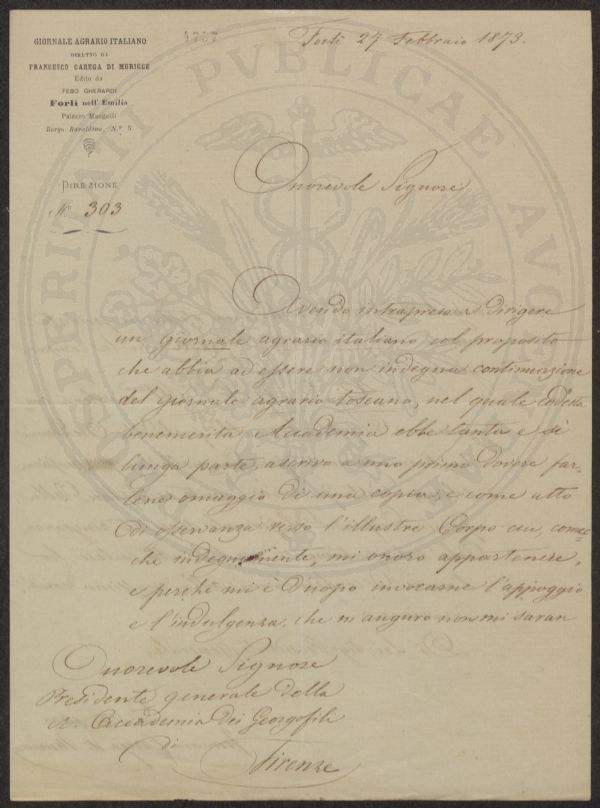 GIORNALE AGRARIO ITALIANO
DIRETTO DA
FRANCESCO CAREGA DI MURICCE
Edito da
FEBO GHERARDI
Forlì nell' Emilia
Palazzo Mangelli
Borgo Ravaldino, N.° 5.
DIREZIONE
N° 303
4757
Forlì 27 Febbraio 1873.
PROSPERITATI PUBLICAE AUGENDAE
Onorevole Signore
Avendo intrapreso a dirigere
un giornale agrario italiano col proposito
che abbia ad essere non indegna continuazione
del giornale agrario toscano, nel quale codesta
benemerita Accademia ebbe tanta e sì
lunga parte, ascrivo a mio primo dovere far-
lene omaggio di una copia, e come atto
di osservanza verso l'illustre Corpo cui, come
chè indegnamente, mi onoro appartenere,
e perchè mi è d'uopo invocarne l'appoggio
e l'indulgenza, che m'auguro non mi saran
Onorevole Signore
Presidente generale della
R. Accademia dei Georgofili
di
Firenze